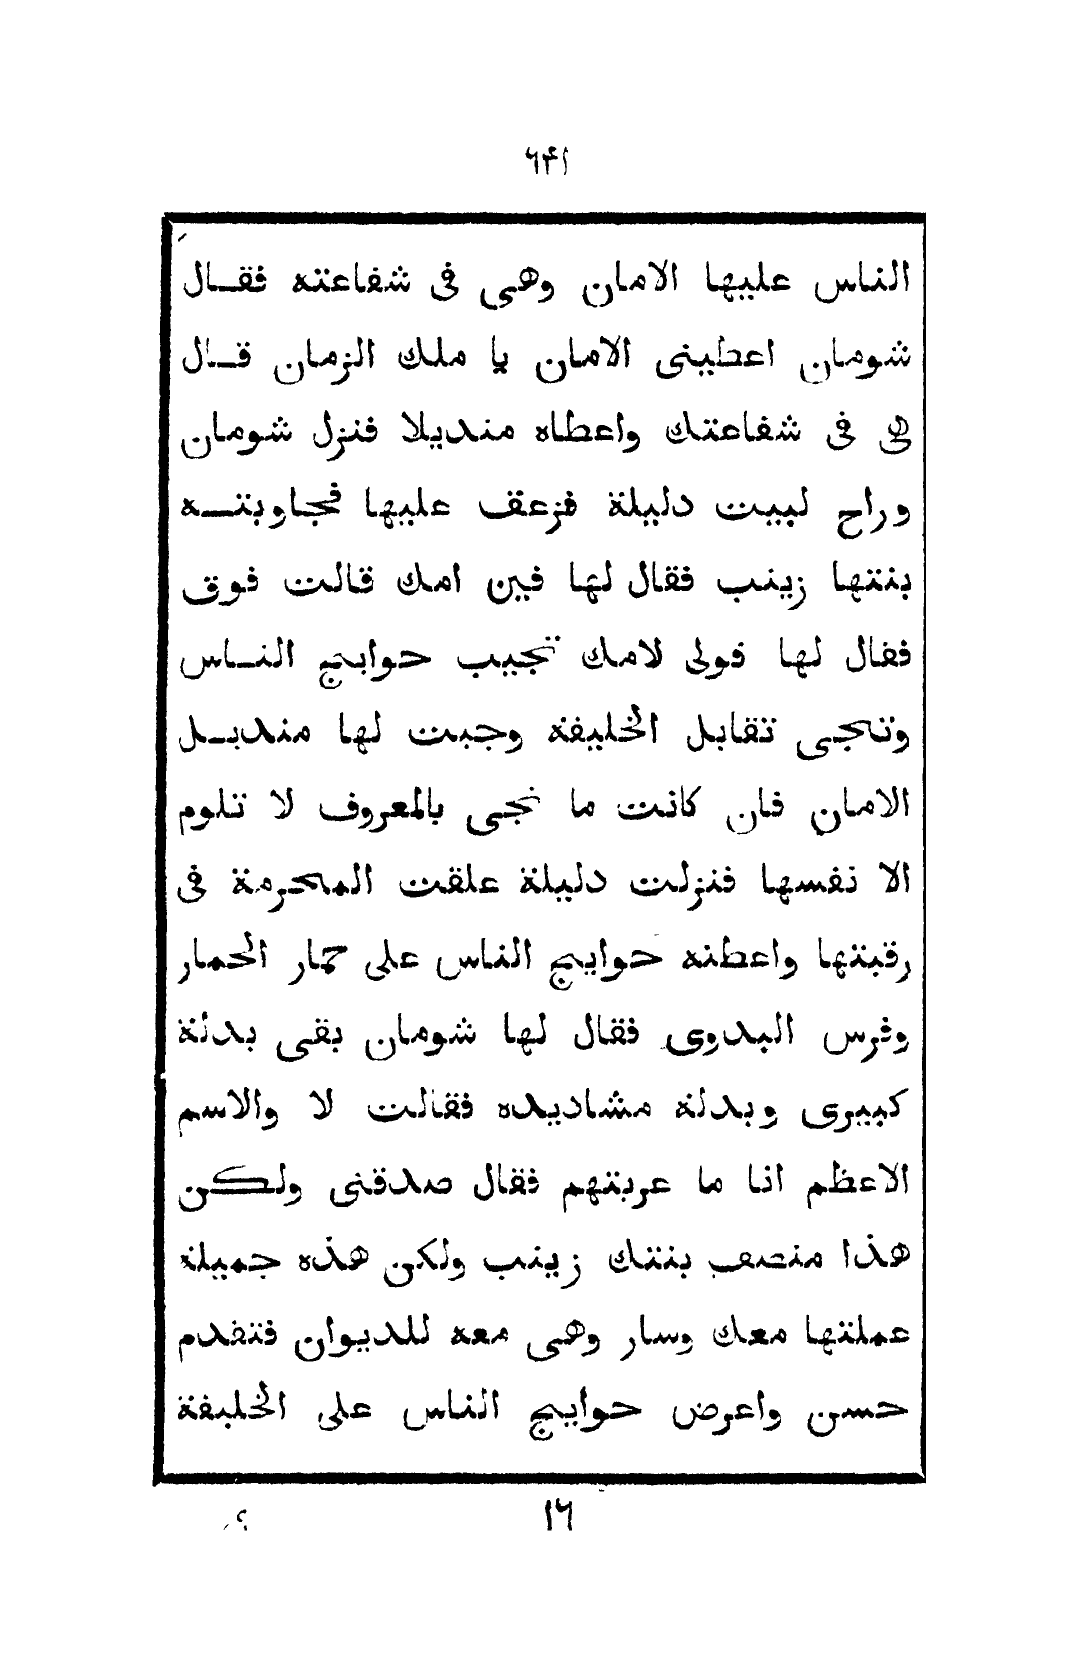 ٢٤١
الناس عليها الامان وهى فى شفاعته فقـال
شومان اعطينى الامان يا ملك الزمان قـال
هى فى شفاعتك واعطاه منديلا فنزل شومان
وراح لبيت دليلة فزعف عليها فجاوبتـه
بنتها زينب فقال لها فين امك قالت فوق
فقال لها قولى لامك تجيب حوايج النـاس
وتجى تقابل الخليفة وجبت لها منديـل
الامان فان كانت ما تجى بالمعروف لا تلوم
الا نفسها فنزلت دليلة علقت المحرمة فى
رقبتها واعطته حوايج الناس على حمار الحمار
وفرس البدوى فقال لها شومان بقى بدلة
كبيرى وبدلة مشاديده فقالت لا والاسم
الاعظم انا ما عريتهم فقال صدقتى ولكن
هذا منصف بنتك زينب ولكن هذه جميلة
عملتها معك وسار وهى معه للديوان فتقدم
حسن واعرض حوايج الناس على الخليفة
١٦